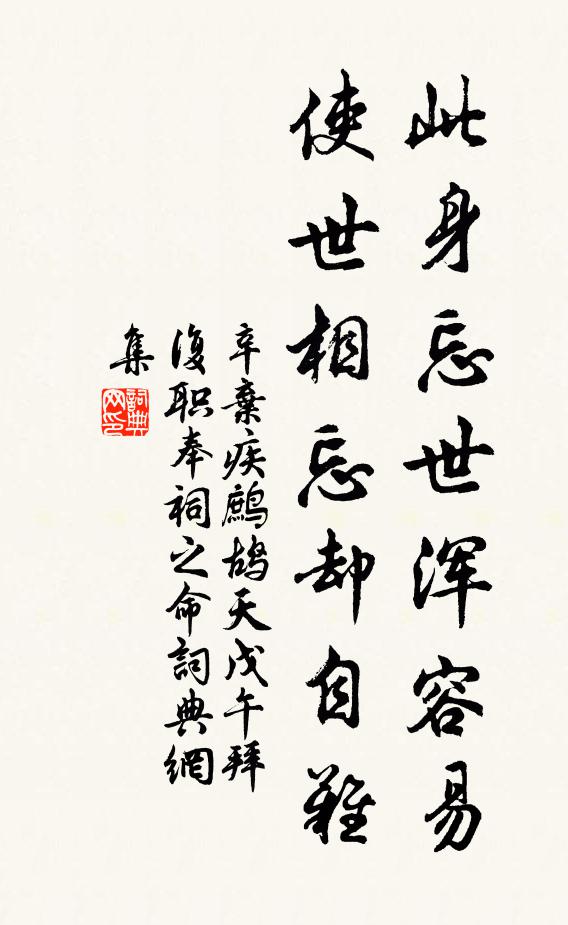 此身忘世浑容易
使世相忘却自难
辛棄疾鷓鴣天戊午拜
復职奉祠之命詞典網
集
詞典
网印